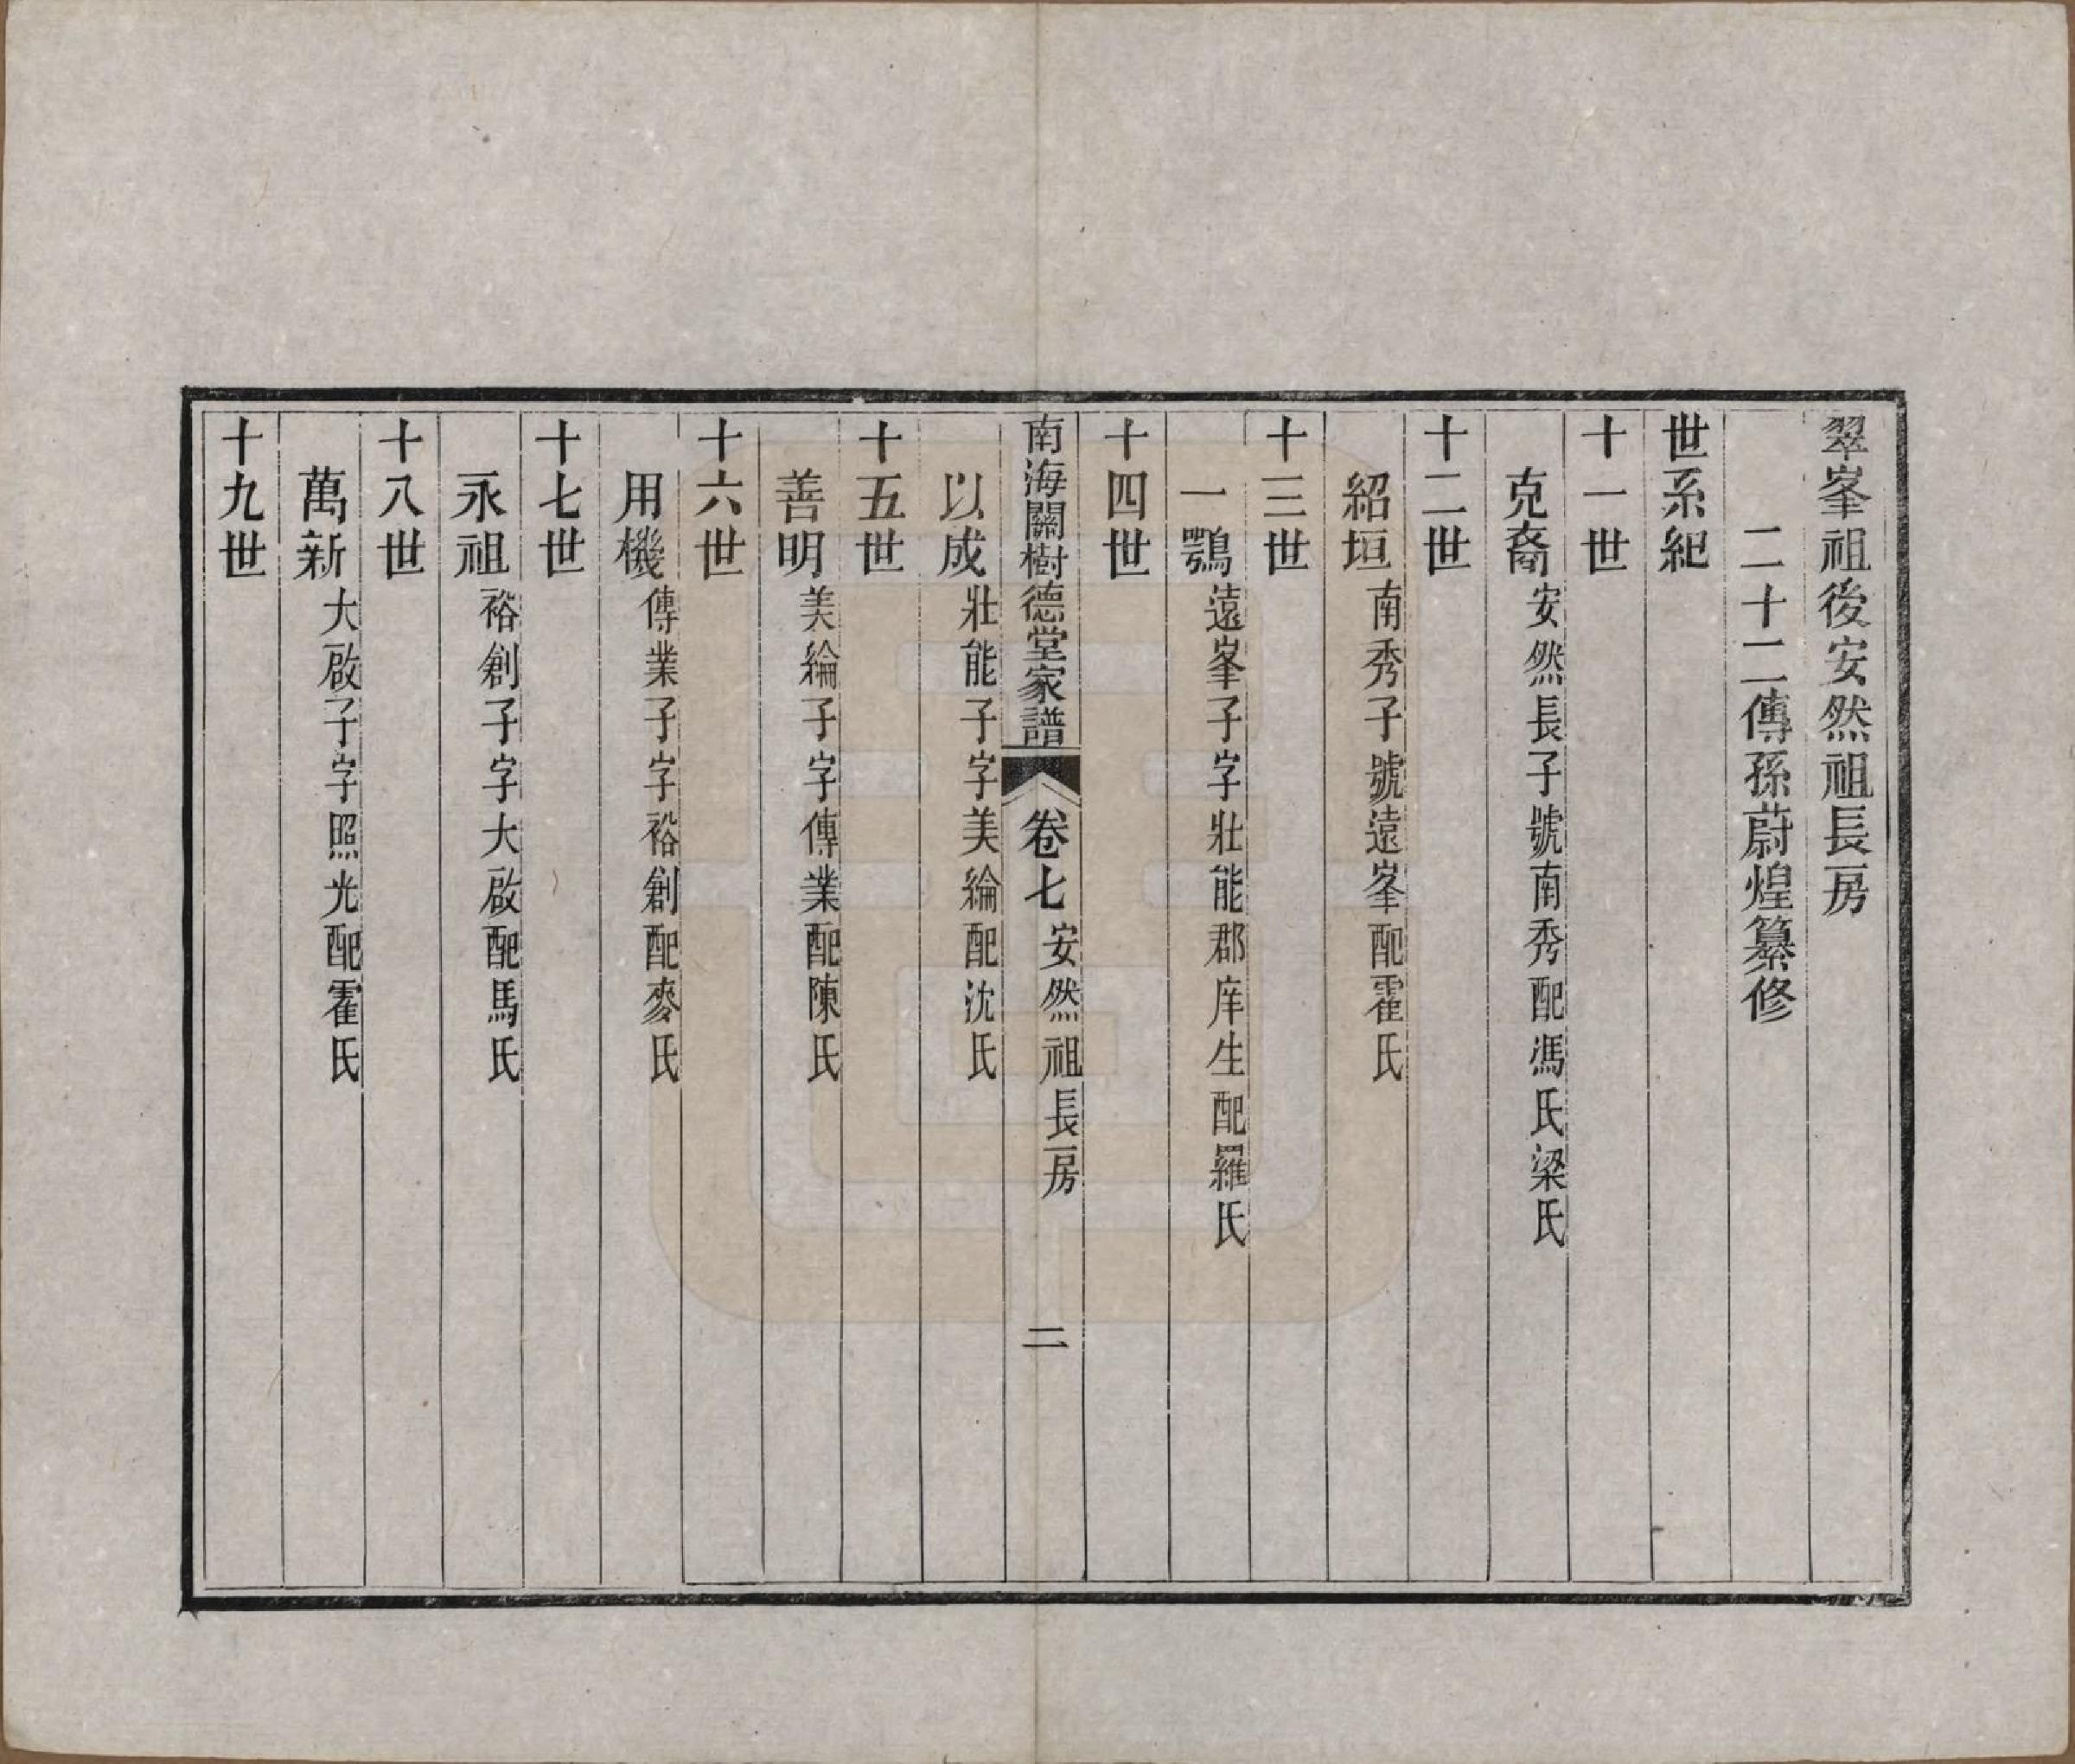 翠峯祖後安然祖長房
二十二傳孫蔚煌纂修
世系紀
十一世
克裔安然長子號南秀配馮氏梁氏
十二世
紹垣南秀子號遠峯配霍氏
十三世
一鶚遠峯子字壯能郡庠生配羅氏
十四世
南海關樹德堂家譜 卷七 安然祖長房 二
以成壯能子字美綸配沈氏
十五世
善明美綸子字傳業配陳氏
十六世
用機傳業子字裕創配麥氏
十七世
永祖裕創子字大啟配馬氏
十八世
萬新大啟子字照光配霍氏
十九世